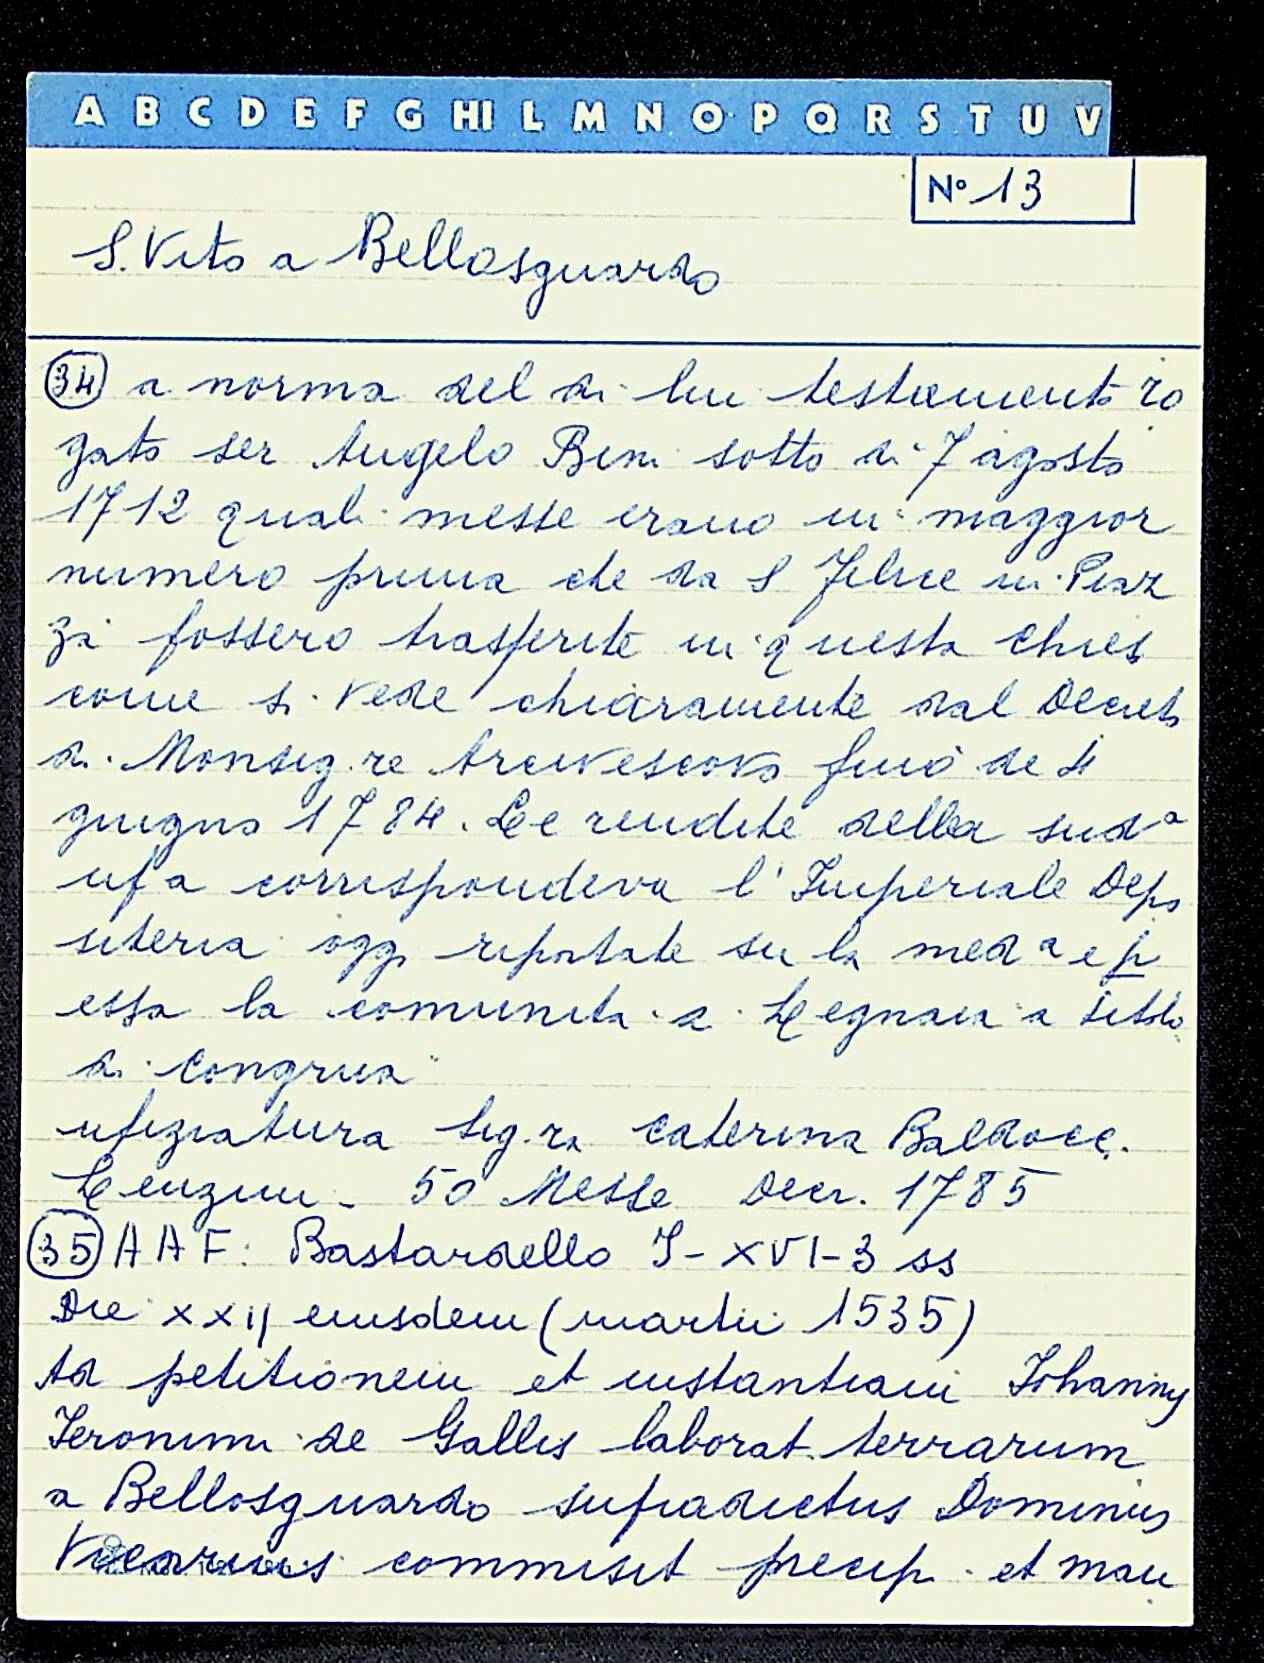 A B C D E F G HI L M N O P Q R S T U V
N° 13
S. Vito a Bellosguardo
34 a norma del di lui testamento ro
gato ser Angelo Bini sotto di 7 agosto
1712 quali messe erano in maggior
numero prima che da S Felice in Piaz
za fossero trasferite in questa chies
come si vede chiaramente dal Decreto
di Monsig.re Arcivescovo fino de 4
giugno 1784. Le rendite della sud a
ufa corrispondeva l'Imperiale Depo
siteria oggi riportate su la med a e p
essa la comunità a Legnaia a titolo
di congrua"
ufiziatura Sig.ra Caterina Baldocc.
Lenzini - 50 Messe Decr. 1785
35 A A F: Bastardello I-XVI-3 ss
Die XXIJ eiusdem (martii 1535)
Ad petitionem et instantiam Johanny
Ieronimi de Gallis laborat. terrarum
a Bellosguardo supradictus Dominus
Vicarius commisit precip. et man